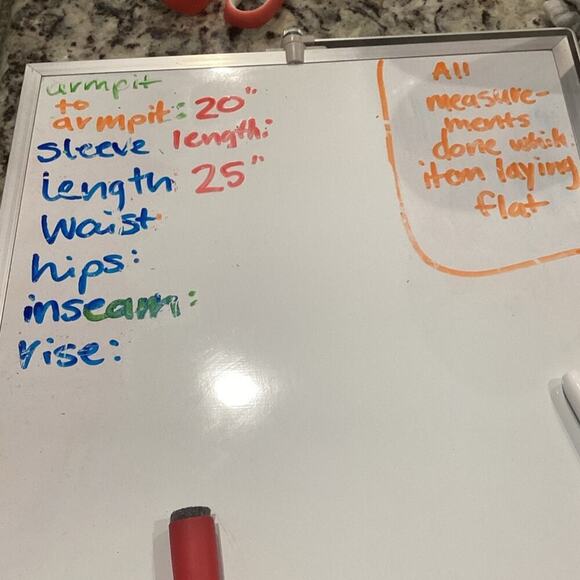 armpit
to
armpit: 20"
sleeve length:
length 25"
Waist
hips:
inseam:
rise:
All
measure-
ments
done which
item laying
flat